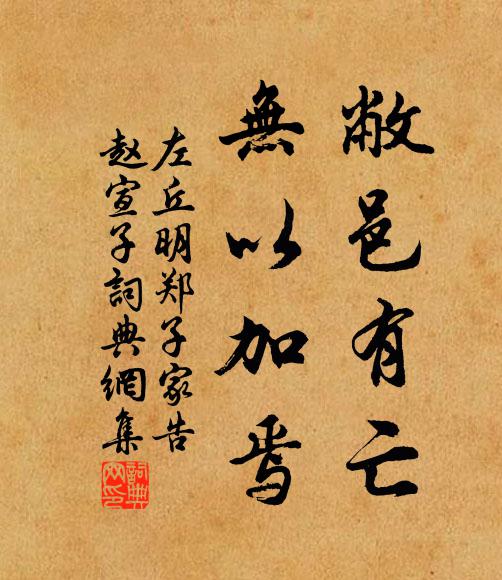 敝邑有亡
無以加焉
左丘明郑子家告
赵宣子詞典網集
詞典
网印